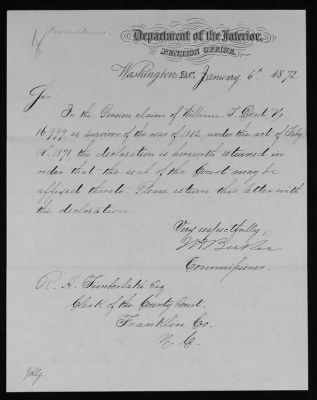 Department of the Interior,
PENSION OFFICE,
Washington, D.C. January 6th 1872
Sir:
In the Pension claim of William T. Dent No
16999 as survivor of the war of 1812 under the act of Feby
14th 1871 the declaration is herewith returned in
order that the seal of the Court may be
affixed thereto. Please return this letter with
the declaration.
Very respectfully,
Baker
Commissioner.
R. H. Timberlake Esq
Clerk of the County Court.
Franklin Co.
N. C.